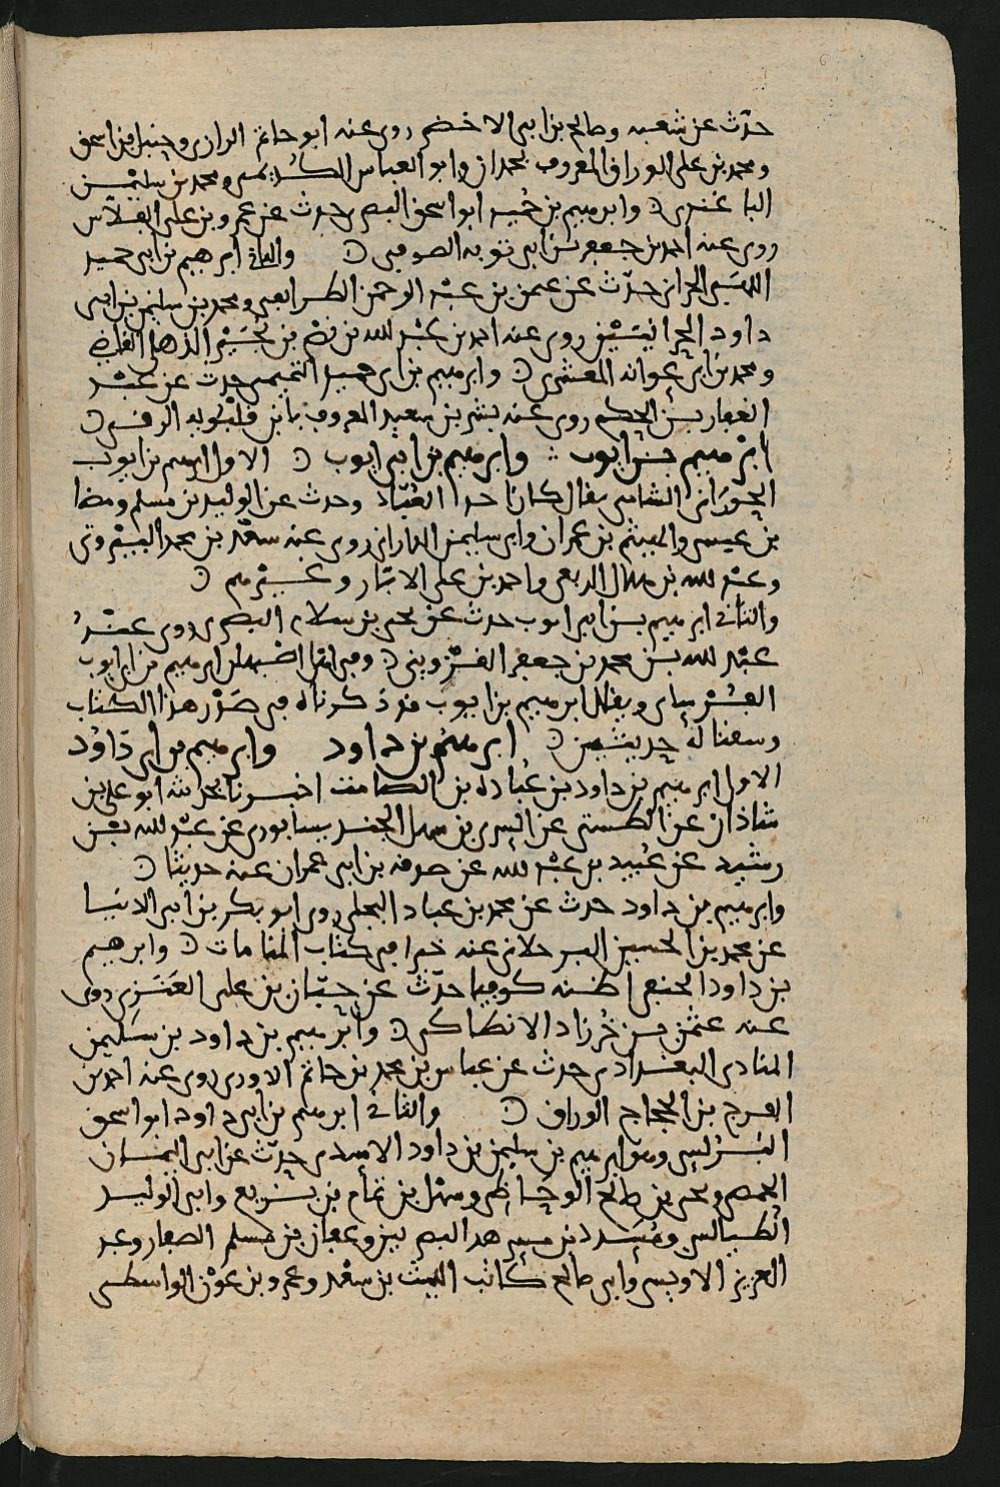 حدّث عن شعبه وصالح بن ابي الاخضر روى عنه ابو حاتم الرازي وحنبل بن اسحق
ومحمد بن علي الوراق المعروف بحمدان وابو العباس الكُديمي ومحمد بن سليمن
الباغندي ۞ وابرهيم بن حُميد ابو اسحق البصري حدث عن عمرو بن علي الفلّاس
روى عنه احمد بن جعفر بن ابي توبه الصوفي ۞ والثاني ابرهيم بن ابي حميد
الحراني حدّث عن عثمن بن عبد الرحمن الطرايفي ومحمد بن سليمن بن ابي
داود الحرانيَيْن روى عنه احمد بن عبد الله بن نصر بن بُجَيْر الذهلي القاضي
ومحمد بن ابي عوانه ۞ وابرهيم بن ابي حميد التميمي حدث عن عبد
الغفار بن الحكم روى عنه بشر بن سعيد المعروف بابن قلبويه الرقي ۞
ابرهيم بن ايوب وابرهيم بن ابي ايوب ۞ الاول ابرهيم بن ايوب
الحوراني الشامي يقال كان احد العُبّاد وحدث عن الوليد بن مسلم ومضا
بن عيسى والهيثم بن عمران وابي سليمن الداراني روى عنه سعد بن محمد البيروتي
وعبد الله بن هلال الربعي واحمد بن علي الابّار وغيرهم ۞
والثاني ابرهيم بن ابي ايوب حدث عن يحيى بن سلام البصري روى عنه
عبد الله بن محمد بن جعفر القزويني ۞ ابرهيم بن ابي ايوب
ويقال ابرهيم بن ايوب قد ذكرناه في صَدْر هذا الكتاب
وسقنا له حديثين ۞ ابرهيم بن داود وابرهيم بن ابي داود
الاول ابرهيم بن داود بن عُباده بن الصامت اخبرنا بحديثه ابو علي بن
شاذان عن الطستي عن السري بن سهل الجنديسابوري عن عبد الله بن
رشيد عن عُبيد بن عبد الله عن صدقه بن ابي عمران عنه حديثا ۞
وابرهيم بن داود حدث عن محمد بن عباد البجلي روى ابو بكر بن ابي الدنيا
عن محمد بن الحسين البرجلاني عنه خبرا في كتاب المنامات ۞ وابرهيم
بن داود اظنه كوفيا حدّث عن حِبّان بن علي العَنَزي روى
عنه عثمن بن خُرزاد الانطاكي ۞ وابرهيم بن داود بن سليمن
المنادي البغدادي حدث عن عباس بن محمد بن حاتم الدوري روى عنه احمد بن
الفرج بن الحجاج الوراق ۞ والثاني ابرهيم بن ابي داود ابو اسحق
البُرُلسي وهو ابرهيم بن سليمن بن داود الاسدي حدّث عن ابي اليمان
الحمصي ويحيى بن صالح الوحاظي وسهل بن تمام بن بزيع وابي الوليد
الطيالسي ومُسدد بن مسرهد البصريين وعفان بن مسلم الصفار وعبد
العزيز الاويسي وابي صالح كاتب الليث بن سعد وعمرو بن عون الواسطي